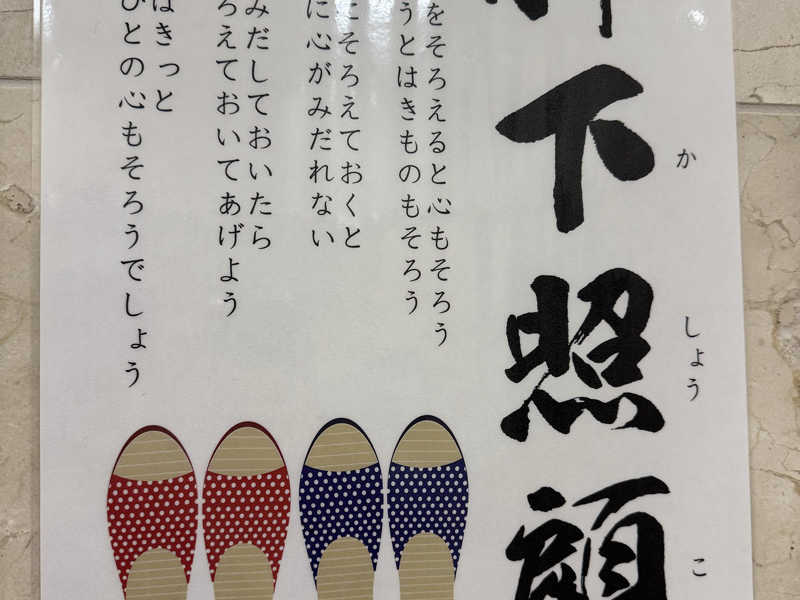 下照顧
か
しょう
こ
をそろえると心もそろう
うとはきものもそろう
にそろえておくと
に心がみだれない
みだしておいたら
ろえておいてあげよう
はきっと
びとの心もそろうでしょう